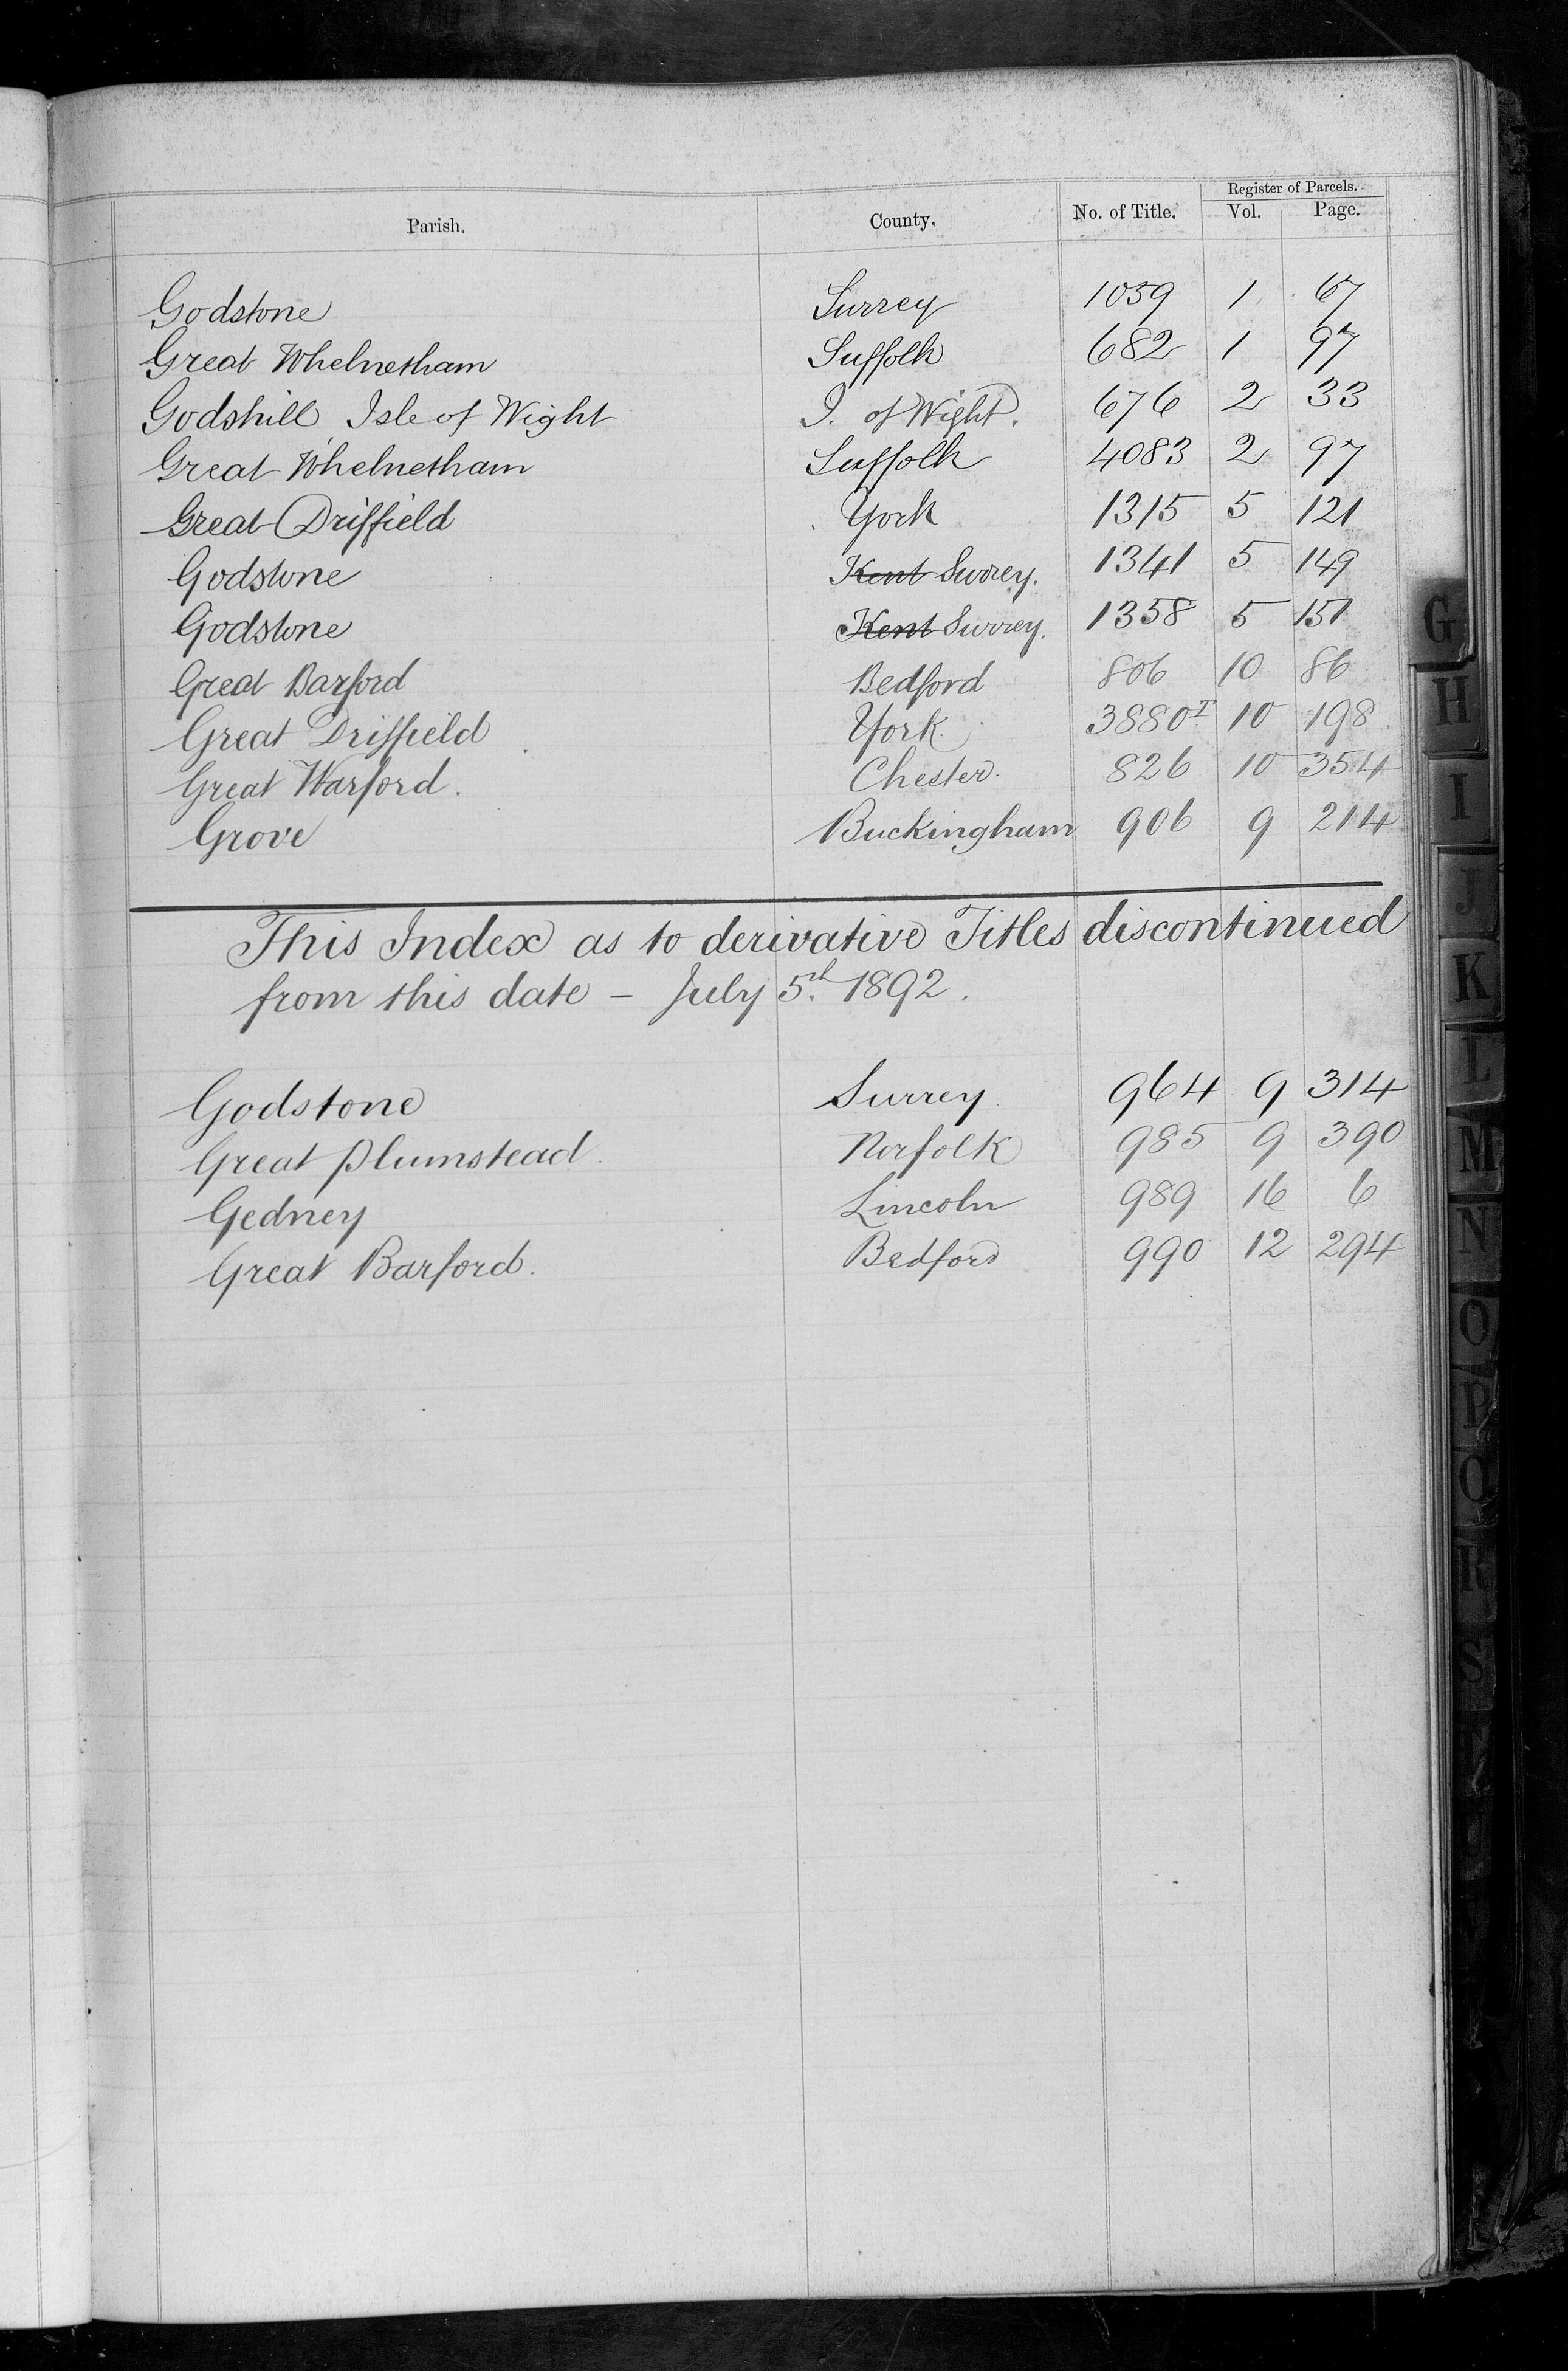 Register of Parcels.
Parish. County. No. of Title. Vol. Page.
Godstone Surrey 1039 1 67
Great Whelnetham Suffolk 682 1 97
Godshill Isle of Wight I. of Wight. 676 2 33
Great Whelnetham Suffolk 4083 2 97
Great Driffield York 1315 5 121
Godstone Kent Surrey. 1341 5 149
Godstone Kent Surrey. 1358 5 151
Great Barford Bedford 806 10 86
Great Driffield York. 3880I 10 198
Great Warford. Chester. 826 10 354
Grove Buckingham 906 9 214
This Index as to derivative Titles discontinued
from this date – July 5th. 1892.
Godstone Surrey 964 9 314
Great Plumstead Norfolk 985 9 390
Gedney Lincoln 989 16 6
Great Barford. Bedford 990 12 294
G
H
I
J
K
L
M
N
O
P
Q
R
S
T
U